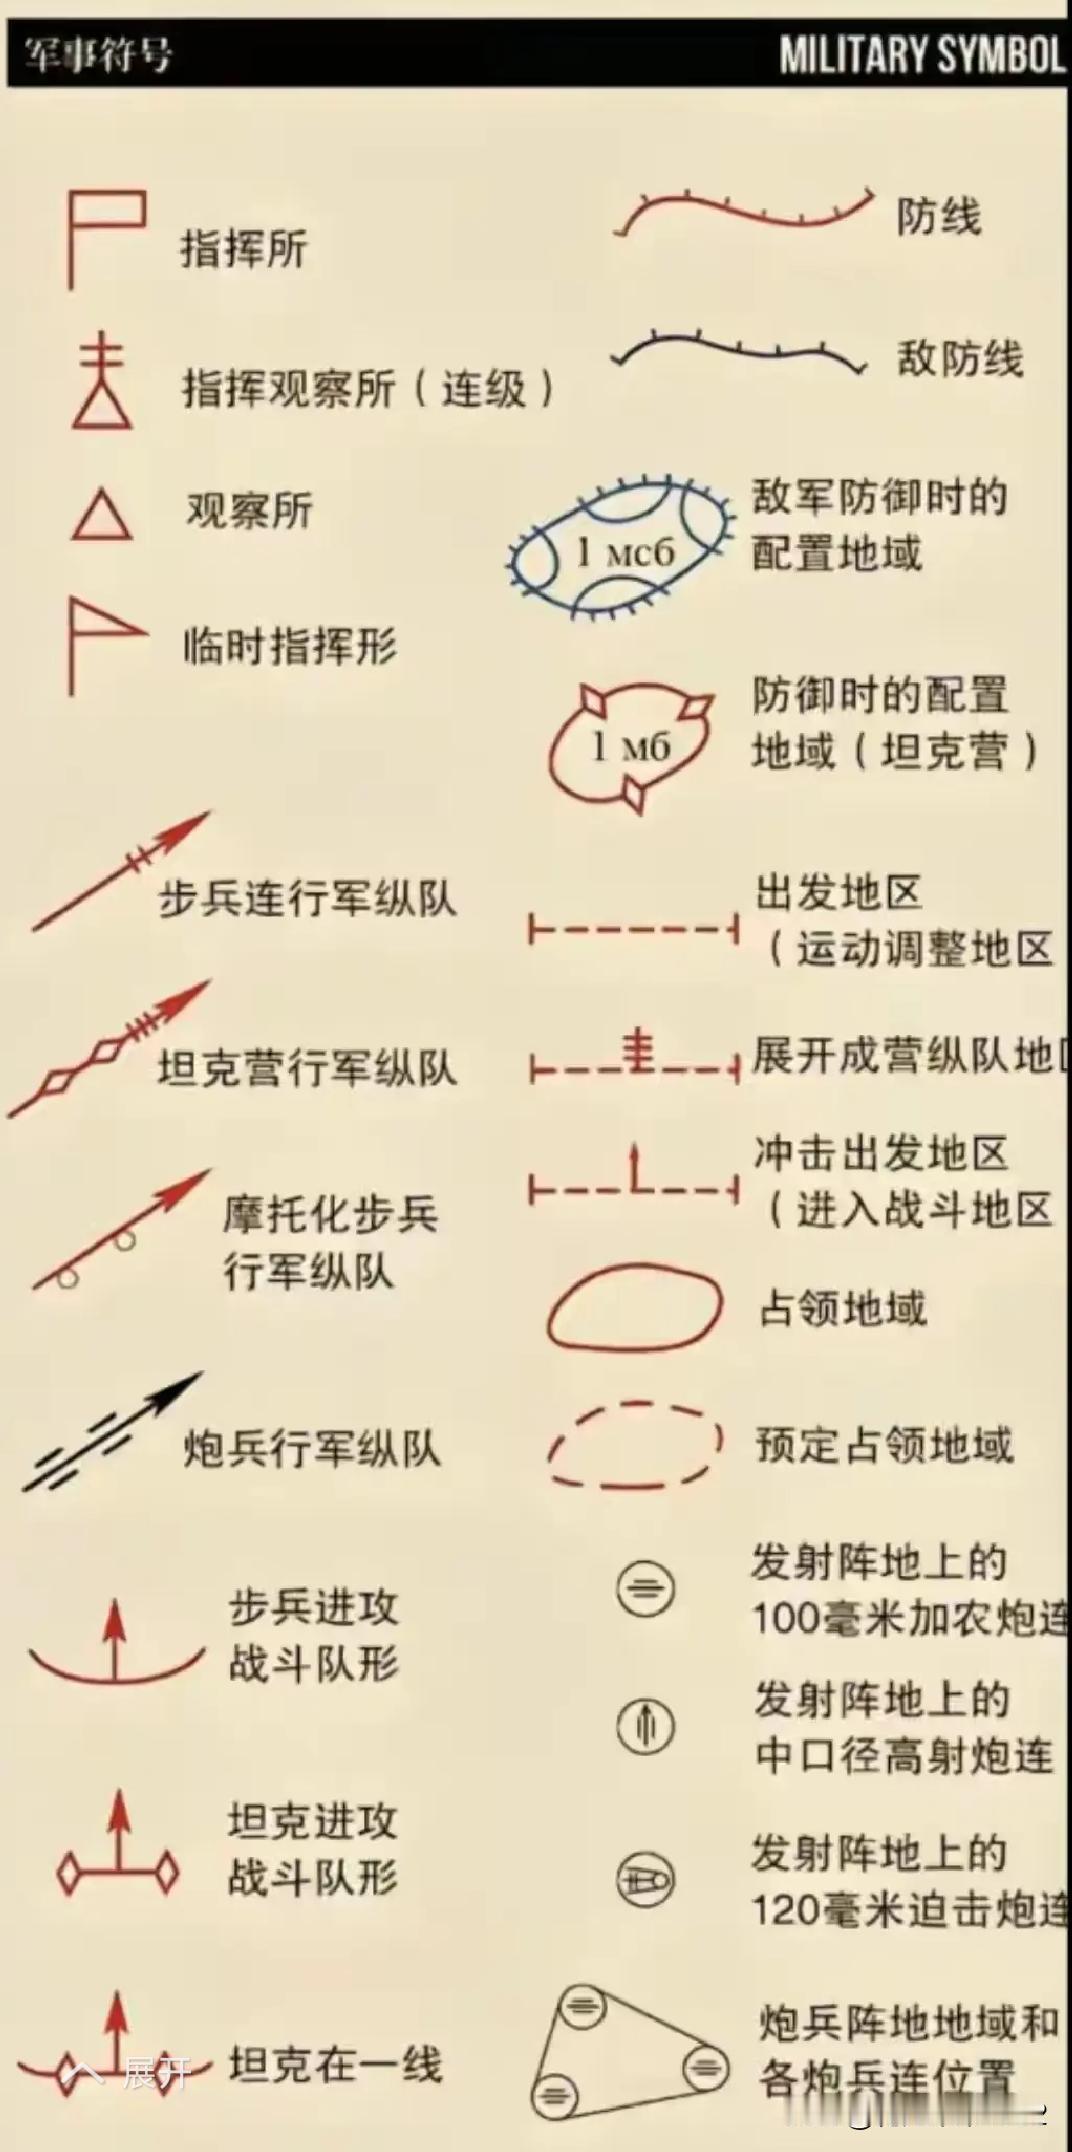 军事符号
MILITARY SYMBOL
指挥所
指挥观察所（连级）
观察所
临时指挥形
步兵连行军纵队
坦克营行军纵队
摩托化步兵
行军纵队
炮兵行军纵队
步兵进攻
战斗队形
坦克进攻
战斗队形
坦克在一线
展开
防线
敌防线
1 мсб
敌军防御时的
配置地域
1 мб
防御时的配置
地域（坦克营）
出发地区
（运动调整地区
展开成营纵队地
冲击出发地区
（进入战斗地区
占领地域
预定占领地域
发射阵地上的
100毫米加农炮连
发射阵地上的
中口径高射炮连
发射阵地上的
120毫米迫击炮连
炮兵阵地地域和
各炮兵连位置